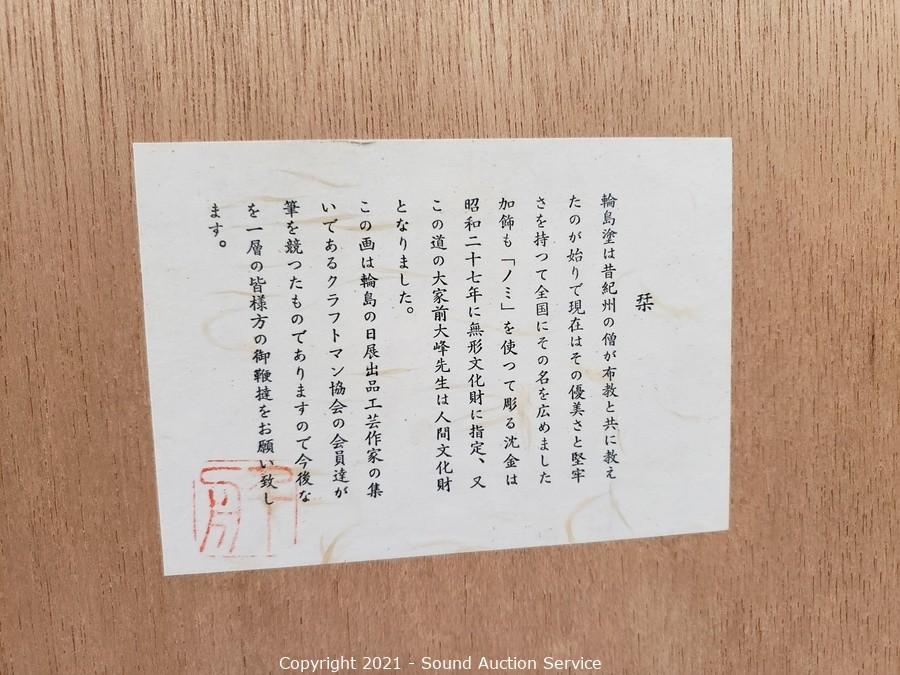 栞
輪島塗は昔紀州の僧が布教と共に教え
たのが始りで現在はその優美さと堅牢
さを持つて全国にその名を広めました
加飾も「ノミ」を使つて彫る沈金は
昭和二十七年に無形文化財に指定、又
この道の大家前大峰先生は人間文化財
となりました。
この画は輪島の日展出品工芸作家の集
いであるクラフトマン協会の会員達が
筆を競つたものでありますので今後な
を一層の皆様方の御鞭撻をお願い致し
ます。
Copyright 2021 - Sound Auction Service